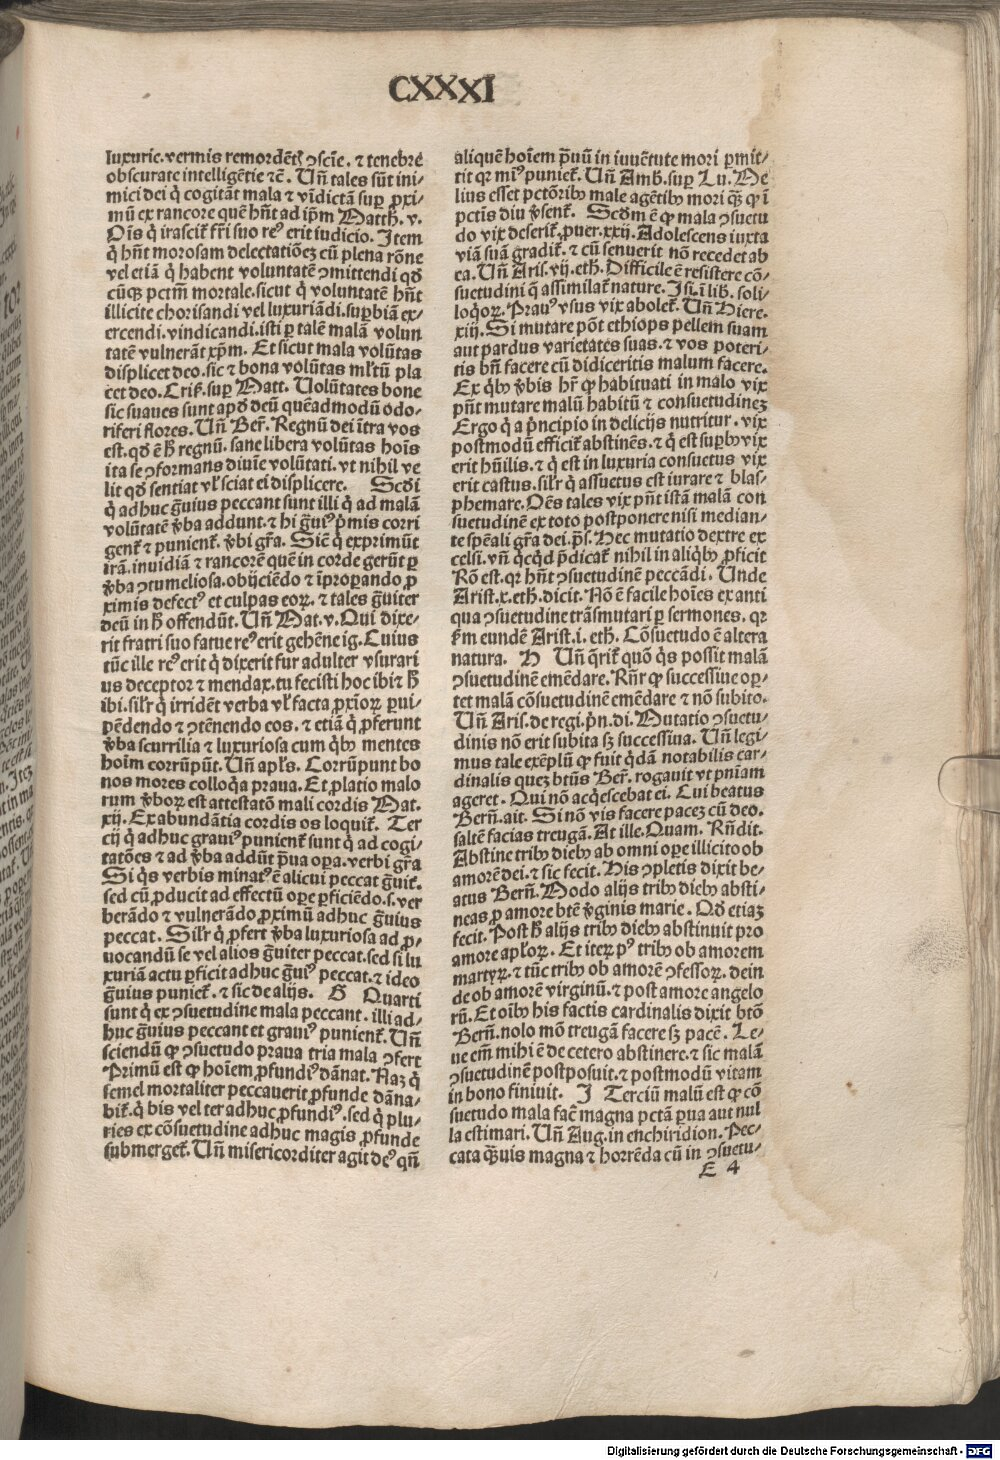 CXXXI
luxurie. vermis remordētꝫ ꝯscīe. ⁊ tenebre
obscurate intelligētie ⁊cē. Uñ tales sūt ini-
mici dei q̇ cogitāt mala ⁊ vīdictā suꝑ ꝓxi-
mū ex rancore quē hn̄t ad ip̄m Matth. v.
Oīs q̇ irascit̃ fr̄i suo reꝰ erit iudicio. Item
q̇ hn̄t morosam delectatiōeꝫ cū plena rōne
vel etiā q̇ habent voluntatē ꝯmittendi qd̄
cūqꝫ pctm̄ mortale. sicut q̇ voluntatē hn̄t
illicite chorisandi vel luxuriādi. suꝑbiā ex-
ercendi. vindicandi. isti ꝑ talē malā volun
tatē vulnerāt xp̄m. Et sicut mala volūtas
displicet deo. sic ⁊ bona volūtas ml̄tū pla
cet deo. Cris̄. suꝑ Matt. Volūtates bone
sic suaues sunt apd̄ deū quēadmodū odo-
riferi flores. Uñ Ber̄. Regnū dei itra vos
est. qd̄ ē h̄ regnū. sane libera volūtas hoīs
ita se ꝯformans diuīe volūtati. vt nihil ve
lit qd̄ sentiat vl̄ sciat ei displicere. Scd̄i
q̇ adhuc g̈uius peccant sunt illi q̇ ad malā
volūtatē v̄ba addunt. ⁊ hi g̈uiꝰ p̄mis corri
gent̃ ⁊ punient̃. v̄bi gr̄a. Sic̄ q̇ exprimūt
irā. inuidiā ⁊ rancorē quē in corde gerūt ꝑ
v̄ba ꝯtumeliosa. obijciēdo ⁊ īproꝑando ꝓ
ximis defectꝰ et culpas eoꝝ. ⁊ tales g̈uiter
deū in h̄ offendūt. Uñ Mat. v. Qui dixe-
rit fratri suo fatue reꝰ erit gehēne ig. Cuius
tūc ille reꝰ erit q̇ dixerit fur adulter vsurari
us deceptor ⁊ mendax. tu fecisti hoc ibi ⁊ h̄
ibi. sil̄r q̇ irridēt verba vl̄ facta ꝓxīoꝝ ꝑui-
pēdendo ⁊ ꝯtēnendo eos. ⁊ etiā q̇ ꝓferunt
v̄ba scurrilia ⁊ luxuriosa cum q̇bꝰ mentes
hoīm corrūpūt. Uñ apl̄s. Corrūpunt bo
nos mores colloq̇a praua. Et ꝓlatio malo
rum v̄boꝝ est attestatō mali cordis Mat.
xij. Ex abundātia cordis os loquit̃. Ter
cij q̇ adhuc grauiꝰ punient̃ sunt q̇ ad cogi-
tatōes ⁊ ad v̄ba addūt p̄ua oꝑa. verbi gr̄a
Si q̇s verbis minatꝰ ē alicui peccat g̈uit̃.
sed cū ꝓducit ad effectū oꝑe ꝑficiēdo. s. ver
berādo ⁊ vulnerādo ꝓximū adhuc g̈uius
peccat. Sil̄r q̇ ꝓfert v̄ba luxuriosa ad ꝓ-
uocandū se vel alios g̈uiter peccat. sed si lu
xuriā actu ꝑficit adhuc g̈uiꝰ peccat. ⁊ ideo
g̈uius puniet̃. ⁊ sic de alijs. G Quarti
sunt q̇ ex ꝯsuetudine mala peccant. illi ad-
huc g̈uius peccant et grauiꝰ punient̃. Uñ
sciendū ꝙ ꝯsuetudo praua tria mala ꝯfert
Primū est ꝙ hoīem ꝓfundiꝰ dānat. Naꝫ q̇
semel mortaliter peccauerit ꝓfunde dāna-
bit̃. q̇ bis vel ter adhuc ꝓfundiꝰ. sed q̇ plu-
ries ex cōsuetudine adhuc magis ꝓfunde
submerget̃. Uñ misericorditer agit deꝰ qn̄
aliquē hoīem p̄uū in iuuētute mori ꝑmit-
tit qꝛ miꝰ puniet̃. Uñ Amb. suꝑ Lu. Me
lius esset pctōribꝰ male agētibꝰ mori qꝫ̄ ꝙ i
pctis diu v̄sent̃. Scd̄m ē ꝙ mala ꝯsuetu
do vix deserit̃. ꝓuer. xxij. Adolescens iuxta
viā suā gradit̃. ⁊ cū senuerit nō recedet ab
ea. Uñ Aris. vij. eth. Difficile ē resistere cō-
suetudini q̄ assimilat̃ nature. Isi. ī lib. soli-
loq̇oꝝ. Prauꝰ vsus vix abolet̃. Uñ Hiere.
xiij. Si mutare pōt ethiops pellem suam
aut pardus varietates suas. ⁊ vos poteri-
tis bn̄ facere cū didiceritis malum facere.
Ex q̇bꝰ v̄bis hr̄ ꝙ habituati in malo vix
pn̄t mutare malū habitū ⁊ consuetudineꝫ
Ergo q̇ a p̄ncipio in delicijs nutritur. vix
postmodū efficit̃ abstinēs. ⁊ q̇ est suꝑbꝰ vix
erit hūilis. ⁊ q̇ est in luxuria consuetus vix
erit castus. sil̄r q̇ assuetus est iurare ⁊ blas-
phemare. Oēs tales vix pn̄t istā malā con
suetudinē ex toto postponere nisi median-
te spēali gr̄a dei. p̄s. Hec mutatio dextre ex
celsi. vn̄ qͥcqͥd p̄dicat̃ nihil in aliq̇bꝰ ꝓficit
Rō est. qꝛ hn̄t ꝯsuetudinē peccādi. Unde
Arist. x. eth. dicit. Nō ē facile hoīes ex anti
qua ꝯsuetudine trāsmutari ꝑ sermones. qꝛ
s̄m eundē Arist. i. eth. Cōsuetudo ē altera
natura. H Uñ q̄rit̃ quō q̇s possit malā
ꝯsuetudinē emēdare. Rn̄r ꝙ successiue opor-
tet malā cōsuetudinē emēdare ⁊ nō subito.
Uñ Aris. de regi. p̄n. di. Mutatio ꝯsuetu-
dinis nō erit subita sꝫ successiua. Uñ legi-
mus tale exēplū ꝙ fuit q̇dā notabilis car-
dinalis queꝫ btūs Ber̄. rogauit vt pn̄iam
ageret. Qui nō acq̇escebat ei. Cui beatus
Bern̄. ait. Si nō vis facere paceꝫ cū deo.
saltē facias treugā. At ille. Quam. Rn̄dit.
Abstine tribꝰ diebꝰ ab omni oꝑe illicito ob
amorē dei. ⁊ sic fecit. His ꝯpletis dixit be-
atus Bern̄. Modo alijs tribꝰ diebꝰ absti-
neas ꝓ amore btē v̄ginis marie. Qd̄ etiaꝫ
fecit. Post h̄ alijs tribꝰ diebꝰ abstinuit pro
amore apl̄oꝝ. Et iteꝝ pꝰ tribꝰ ob amorem
martyꝝ. ⁊ tūc tribꝰ ob amorē ꝯfessoꝝ. dein
de ob amorē virginū. ⁊ post amore angelo
rū. Et oībꝰ his factis cardinalis dixit btō
Bern̄. nolo mō treugā facere sꝫ pacē. Le-
ue em̄ mihi ē de cetero abstinere. ⁊ sic malā
ꝯsuetudinē postposuit. ⁊ postmodū vitam
in bono finiuit. I Terciū malū est ꝙ cō
suetudo mala fac̄ magna pctā ꝑua aut nul
la estimari. Uñ Aug. in enchiridion. Pec-
cata qꝫ̄uis magna ⁊ horrēda cū in ꝯsuetu-
E 4
Digitalisierung gefördert durch die Deutsche Forschungsgemeinschaft - DFG